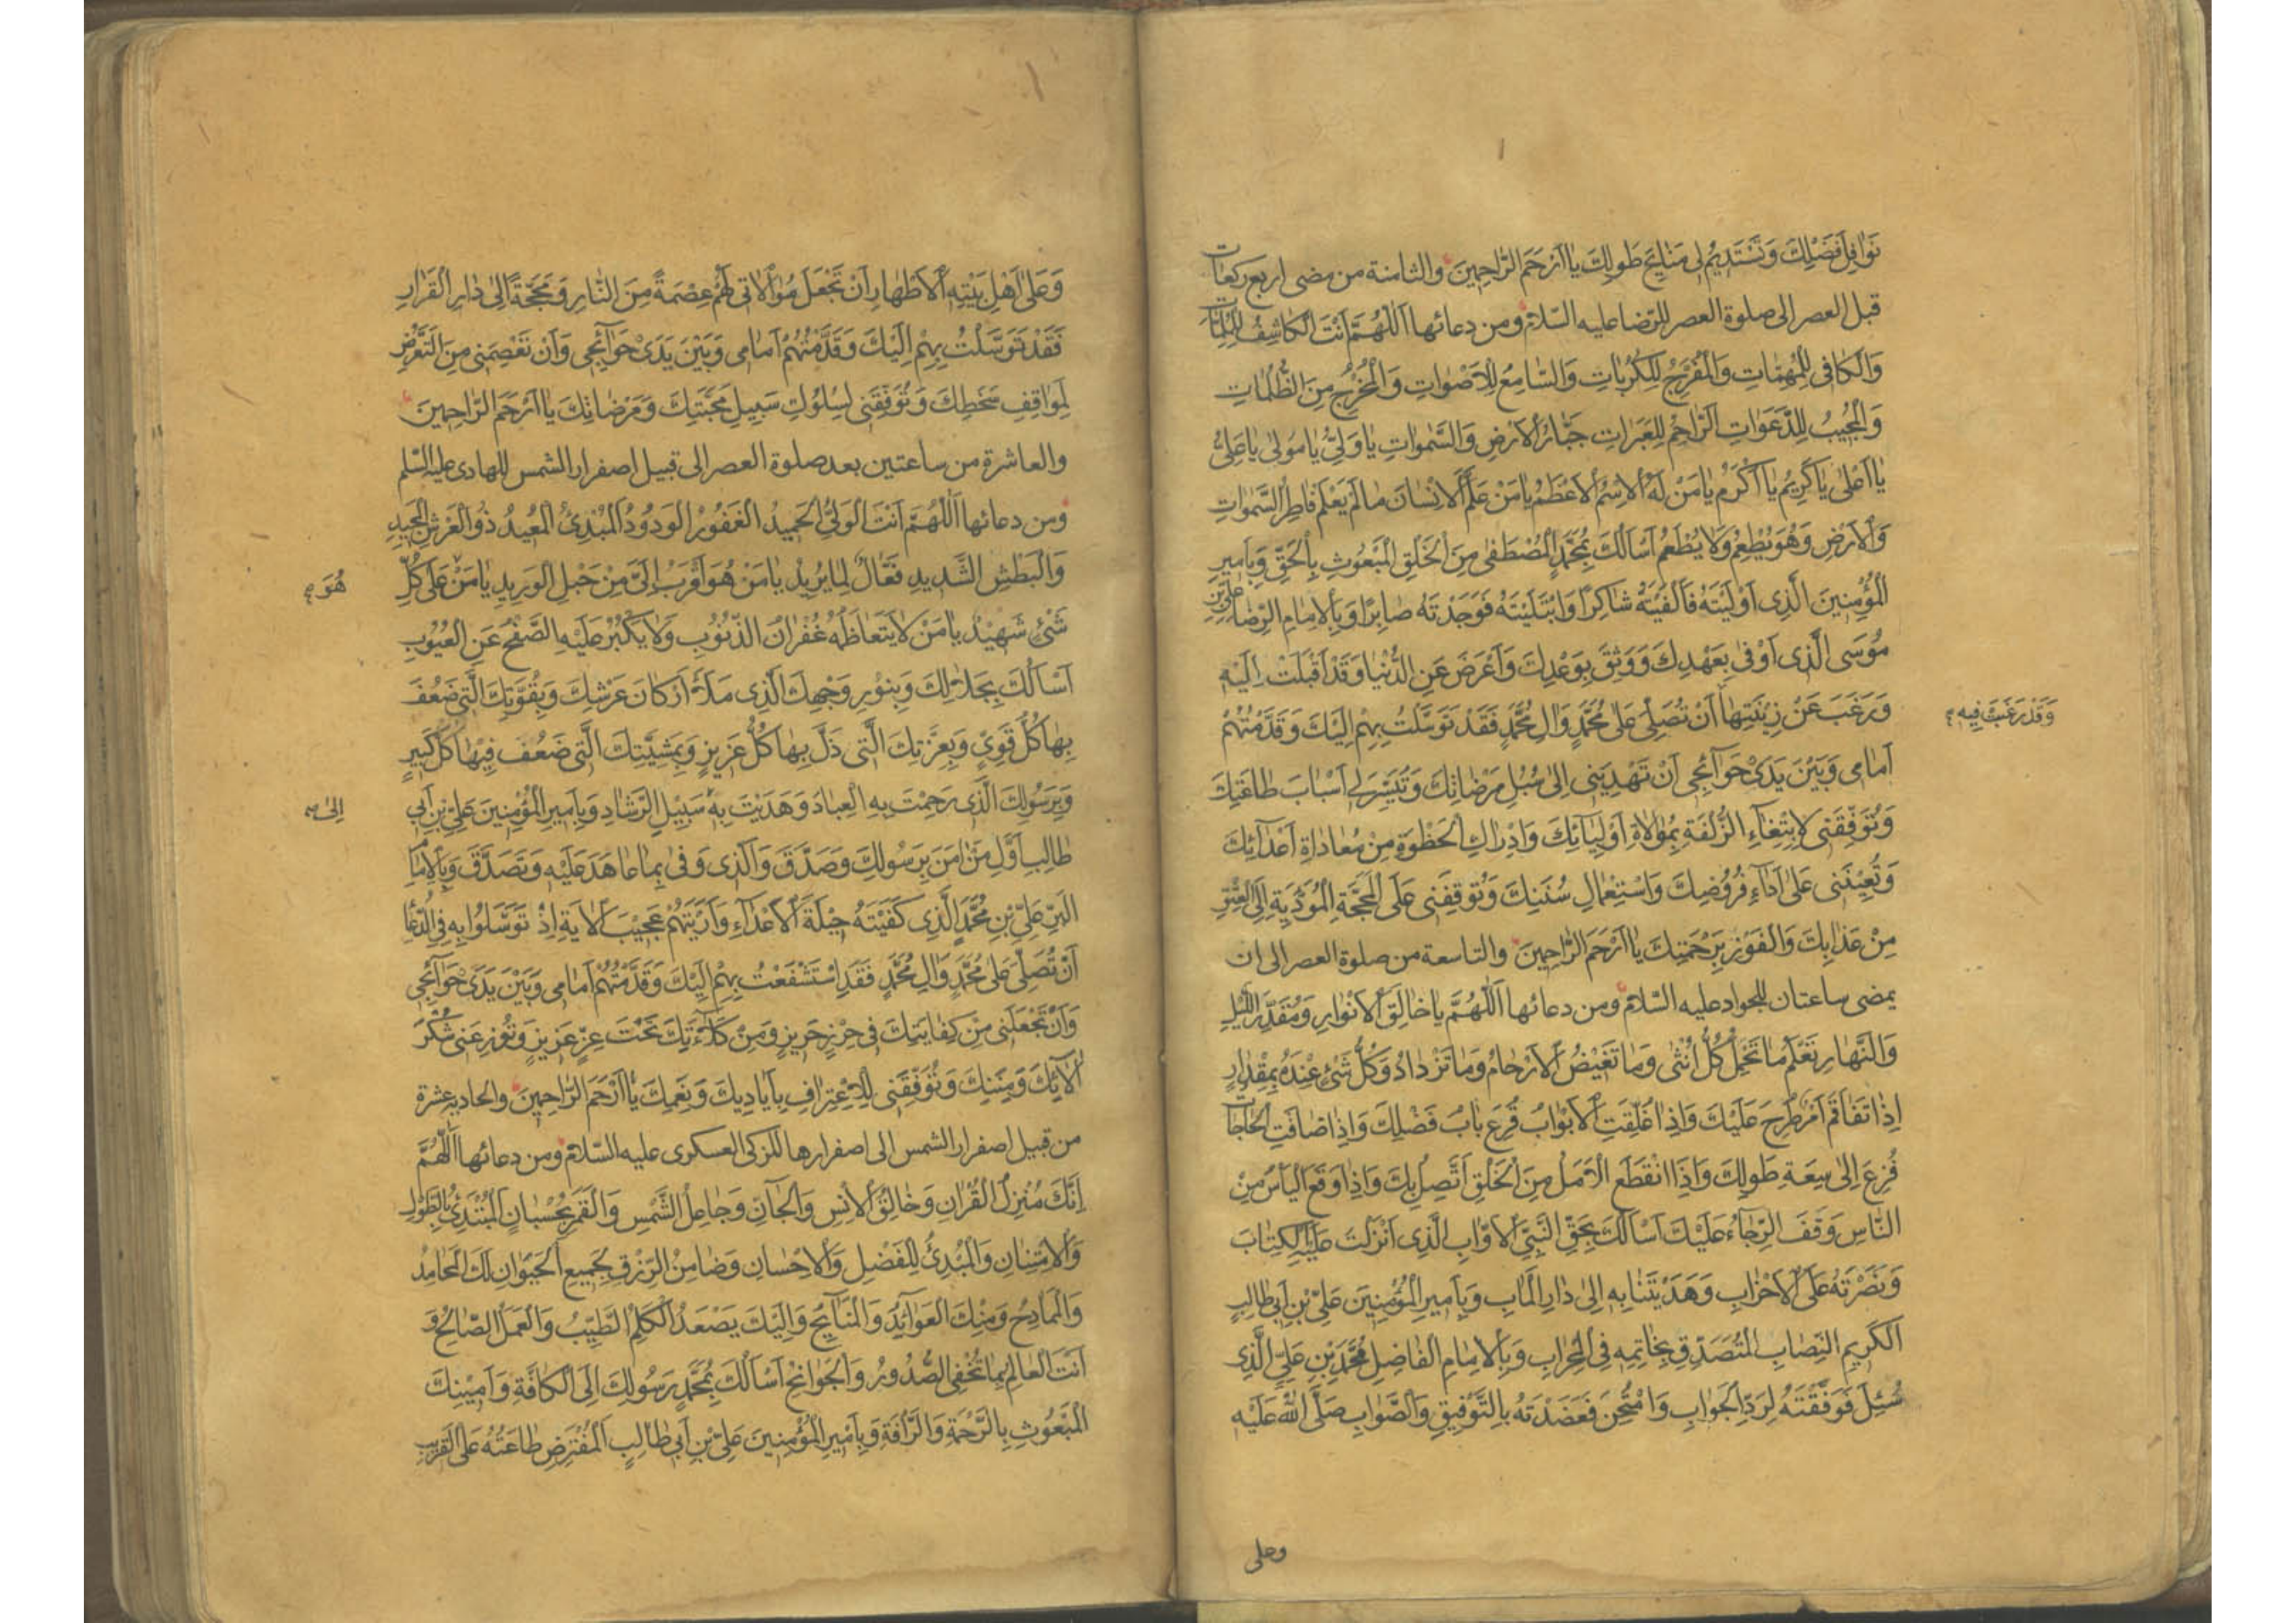 نَوَافِلَ فَضْلِكَ وَتَسْتَدِيمُ لِى مَنَايِحَ طَوْلِكَ يَا أَرْحَمَ الرَّاحِمِينَ والثامنة من مضى اربع ركعات
قبل العصر الى صلوة العصر للرضا عليه السّلام ومن دعائها اَللّٰهُمَّ أَنْتَ الْكَاشِفُ لِلْمُلِمَّاتِ
وَالْكَافِى لِلْمُهِمَّاتِ وَالْمُفَرِّجُ لِلْكُرُبَاتِ وَالسَّامِعُ لِلْأَصْوَاتِ وَالْمُخْرِجُ مِنَ الظُّلُمَاتِ
وَالْمُجِيبُ لِلدَّعَوَاتِ الرَّاحِمُ لِلْعَبَرَاتِ جَبَّارُ الْأَرْضِ وَالسَّمٰوَاتِ يَا وَلِىُّ يَا مَوْلٰى يَا عَلِىُّ
يَا أَعْلٰى يَا كَرِيمُ يَا أَكْرَمُ يَا مَنْ لَهُ الْاِسْمُ الْأَعْظَمُ يَا مَنْ عَلَّمَ الْاِنْسَانَ مَا لَمْ يَعْلَمْ فَاطِرُ السَّمٰوَاتِ
وَالْأَرْضِ وَهُوَ يُطْعِمُ وَلَا يُطْعَمُ أَسْأَلُكَ بِمُحَمَّدٍ الْمُصْطَفٰى مِنَ الْخَلْقِ الْمَبْعُوثِ بِالْحَقِّ وَبِأَمِيرِ
الْمُؤْمِنِينَ الَّذِى أَوْلَيْتَهُ فَأَلْفَيْتَهُ شَاكِرًا وَابْتَلَيْتَهُ فَوَجَدْتَهُ صَابِرًا وَبِالْاِمَامِ الرِّضَا عَلِىِّ بْنِ
مُوسَى الَّذِى أَوْفٰى بِعَهْدِكَ وَوَثِقَ بِوَعْدِكَ وَأَعْرَضَ عَنِ الدُّنْيَا وَقَدْ أَقْبَلَتْ إِلَيْهِ
وَرَغِبَ عَنْ زِينَتِهَا أَنْ تُصَلِّىَ عَلٰى مُحَمَّدٍ وَآلِ مُحَمَّدٍ فَقَدْ تَوَسَّلْتُ بِهِمْ إِلَيْكَ وَقَدَّمْتُهُمْ
وَقَدْ رَغِبَتْ فِيهِ
أَمَامِى وَبَيْنَ يَدَىْ حَوَائِجِى أَنْ تَهْدِيَنِى إِلٰى سُبُلِ مَرْضَاتِكَ وَتُيَسِّرَ لِى أَسْبَابَ طَاعَتِكَ
وَتُوَفِّقَنِى لِابْتِغَاءِ الزُّلْفَةِ بِمُوَالَاةِ أَوْلِيَائِكَ وَإِدْرَاكِ الْحُظْوَةِ مِنْ مُعَادَاةِ أَعْدَائِكَ
وَتُعِينَنِى عَلٰى أَدَاءِ فُرُوضِكَ وَاسْتِعْمَالِ سُنَنِكَ وَتُوقِفَنِى عَلَى الْمَحَجَّةِ الْمُؤَدِّيَةِ إِلَى الْعِتْقِ
مِنْ عَذَابِكَ وَالْفَوْزِ بِرَحْمَتِكَ يَا أَرْحَمَ الرَّاحِمِينَ والتاسعة من صلوة العصر الى ان
يمضى ساعتان للجواد عليه السّلام ومن دعائها اَللّٰهُمَّ يَا خَالِقَ الْأَنْوَارِ وَمُقَدِّرَ اللَّيْلِ
وَالنَّهَارِ تَعْلَمُ مَا تَحْمِلُ كُلُّ أُنْثٰى وَمَا تَغِيضُ الْأَرْحَامُ وَمَا تَزْدَادُ وَكُلُّ شَىْءٍ عِنْدَهُ بِمِقْدَارٍ
إِذَا تَفَاقَمَ أَمْرٌ طُرِحَ عَلَيْكَ وَإِذَا غُلِّقَتِ الْأَبْوَابُ قُرِعَ بَابُ فَضْلِكَ وَإِذَا ضَاقَتِ الْحَاجَاتُ
فُزِعَ إِلٰى سِعَةِ طَوْلِكَ وَإِذَا انْقَطَعَ الْأَمَلُ مِنَ الْخَلْقِ اتَّصَلَ بِكَ وَإِذَا وَقَعَ الْيَأْسُ مِنَ
النَّاسِ وَقَفَ الرَّجَاءُ عَلَيْكَ أَسْأَلُكَ بِحَقِّ النَّبِىِّ الْأَوَّابِ الَّذِى أَنْزَلْتَ عَلَيْهِ الْكِتَابَ
وَنَصَرْتَهُ عَلَى الْأَحْزَابِ وَهَدَيْتَنَا بِهِ إِلٰى دَارِ الْمَآبِ وَبِأَمِيرِ الْمُؤْمِنِينَ عَلِىِّ بْنِ أَبِى طَالِبٍ
الْكَرِيمِ النِّصَابِ الْمُتَصَدِّقِ بِخَاتَمِهِ فِى الْمِحْرَابِ وَبِالْاِمَامِ الْفَاضِلِ مُحَمَّدِ بْنِ عَلِىٍّ الَّذِى
سُئِلَ فَوَفَّقْتَهُ لِرَدِّ الْجَوَابِ وَامْتُحِنَ فَعَضَدْتَهُ بِالتَّوْفِيقِ وَالصَّوَابِ صَلَّى اللّٰهُ عَلَيْهِ
وعلى
وَعَلٰى أَهْلِ بَيْتِهِ الْأَطْهَارِ أَنْ تَجْعَلَ مُوَالَاتِى لَهُمْ عِصْمَةً مِنَ النَّارِ وَمَحَجَّةً إِلٰى دَارِ الْقَرَارِ
فَقَدْ تَوَسَّلْتُ بِهِمْ إِلَيْكَ وَقَدَّمْتُهُمْ أَمَامِى وَبَيْنَ يَدَىْ حَوَائِجِى وَأَنْ تَعْصِمَنِى مِنَ التَّعَرُّضِ
لِمَوَاقِفِ سَخَطِكَ وَتُوَفِّقَنِى لِسُلُوكِ سَبِيلِ مَحَبَّتِكَ وَمَرْضَاتِكَ يَا أَرْحَمَ الرَّاحِمِينَ
والعاشرة من ساعتين بعد صلوة العصر الى قبيل اصفرار الشمس للهادى عليه السّلم
ومن دعائها اَللّٰهُمَّ أَنْتَ الْوَلِىُّ الْحَمِيدُ الْغَفُورُ الْوَدُودُ الْمُبْدِئُ الْمُعِيدُ ذُو الْعَرْشِ الْمَجِيدِ
وَالْبَطْشِ الشَّدِيدِ فَعَّالٌ لِمَا يُرِيدُ يَا مَنْ هُوَ أَقْرَبُ إِلَىَّ مِنْ حَبْلِ الْوَرِيدِ يَا مَنْ عَلٰى كُلِّ
هُوَ
شَىْءٍ شَهِيدٌ يَا مَنْ لَا يَتَعَاظَمُهُ غُفْرَانُ الذُّنُوبِ وَلَا يَكْبُرُ عَلَيْهِ الصَّفْحُ عَنِ الْعُيُوبِ
أَسْأَلُكَ بِجَلَالِكَ وَبِنُورِ وَجْهِكَ الَّذِى مَلَأَ أَرْكَانَ عَرْشِكَ وَبِقُوَّتِكَ الَّتِى ضَعُفَ
بِهَا كُلُّ قَوِىٍّ وَبِعِزَّتِكَ الَّتِى ذَلَّ بِهَا كُلُّ عَزِيزٍ وَبِمَشِيَّتِكَ الَّتِى ضَعُفَ فِيهَا كُلُّ كَبِيرٍ
وَبِرَسُولِكَ الَّذِى رَحِمْتَ بِهِ الْعِبَادَ وَهَدَيْتَ بِهِ سَبِيلَ الرَّشَادِ وَبِأَمِيرِ الْمُؤْمِنِينَ عَلِىِّ بْنِ أَبِى
إِلٰى
طَالِبٍ أَوَّلِ مَنْ آمَنَ بِرَسُولِكَ وَصَدَّقَ وَالَّذِى وَفٰى بِمَا عَاهَدَ عَلَيْهِ وَتَصَدَّقَ وَبِالْاِمَامِ
الْبَرِّ عَلِىِّ بْنِ مُحَمَّدٍ الَّذِى كَفَيْتَهُ حِيلَةَ الْأَعْدَاءِ وَأَرَيْتَهُمْ عَجِيبَ الْآيَةِ إِذْ تَوَسَّلُوا بِهِ فِى الدُّعَاءِ
أَنْ تُصَلِّىَ عَلٰى مُحَمَّدٍ وَآلِ مُحَمَّدٍ فَقَدِ اسْتَشْفَعْتُ بِهِمْ إِلَيْكَ وَقَدَّمْتُهُمْ أَمَامِى وَبَيْنَ يَدَىْ حَوَائِجِى
وَأَنْ تَجْعَلَنِى مِنْ كِفَايَتِكَ فِى حِرْزٍ حَرِيزٍ وَمِنْ كَلَاءَتِكَ تَحْتَ عِزٍّ عَزِيزٍ وَتُوزِعَنِى شُكْرَ
آلَائِكَ وَمِنَنِكَ وَتُوَفِّقَنِى لِلْاِعْتِرَافِ بِأَيَادِيكَ وَنِعَمِكَ يَا أَرْحَمَ الرَّاحِمِينَ والحادية عشرة
من قبيل اصفرار الشمس الى اصفرارها للزكى العسكرى عليه السّلام ومن دعائها اَللّٰهُمَّ
إِنَّكَ مُنْزِلُ الْقُرْآنِ وَخَالِقُ الْاِنْسِ وَالْجَانِّ وَجَاعِلُ الشَّمْسِ وَالْقَمَرِ بِحُسْبَانٍ الْمُبْتَدِئُ بِالطَّوْلِ
وَالْاِمْتِنَانِ وَالْمُبْدِئُ لِلْفَضْلِ وَالْاِحْسَانِ وَضَامِنُ الرِّزْقِ لِجَمِيعِ الْحَيَوَانِ لَكَ الْمَحَامِدُ
وَالْمَمَادِحُ وَمِنْكَ الْعَوَائِدُ وَالْمَنَايِحُ وَإِلَيْكَ يَصْعَدُ الْكَلِمُ الطَّيِّبُ وَالْعَمَلُ الصَّالِحُ وَ
أَنْتَ الْعَالِمُ بِمَا تُخْفِى الصُّدُورُ وَالْجَوَانِحُ أَسْأَلُكَ بِمُحَمَّدٍ رَسُولِكَ إِلَى الْكَافَّةِ وَأَمِينِكَ
الْمَبْعُوثِ بِالرَّحْمَةِ وَالرَّأْفَةِ وَبِأَمِيرِ الْمُؤْمِنِينَ عَلِىِّ بْنِ أَبِى طَالِبٍ الْمُفْتَرَضِ طَاعَتُهُ عَلَى الْقَرِيبِ